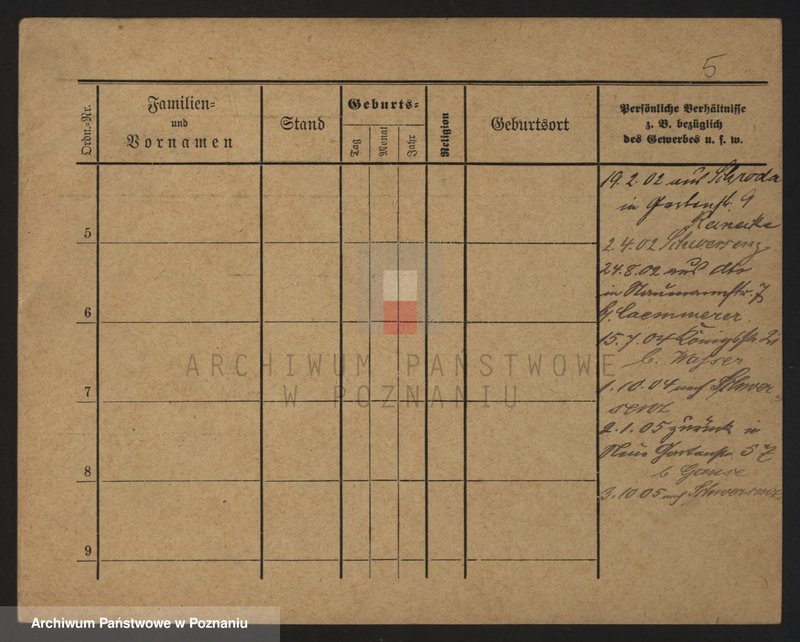 5
Ordn.-Nr.
Familien=
und
Vornamen
Stand
Geburts=
Tag
Monat
Jahr
Religion
Geburtsort
Persönliche Verhältnisse
z. B. bezüglich
des Gewerbes u. s. w.
19.2.02 aus Schroda
in Gartenst. 9
2.4.02 Schwersenz
5
24.8.02 aus dto
in Naumannstr. 7
b. Caemmerer
6
15.7.04 Königstr.
b.
1.10.04 nach Schwer-
senz
7
2.1.05 zurück in
Neue Gartenstr. 57
b Ganse
8
3.10.05 nach Schwersenz
9
ARCHIWUM PAŃSTWOWE
W POZNANIU
Archiwum Państwowe w Poznaniu